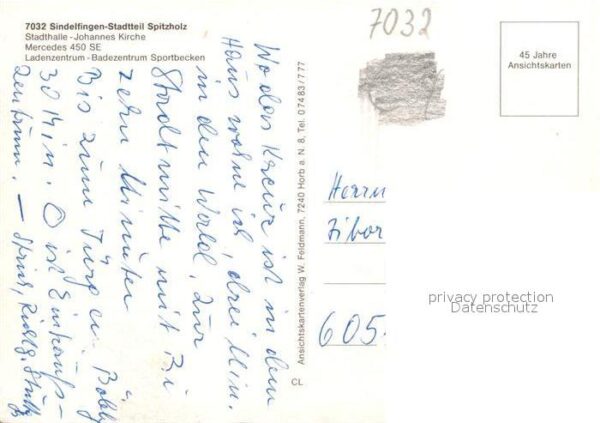 7032 Sindelfingen-Stadtteil Spitzholz
Stadthalle - Johannes Kirche
Mercedes 450 SE
Ladenzentrum - Badezentrum Sportbecken
7032
45 Jahre
Ansichtskarten
Wo das Kreuz ist in dem
Haus wohne ich, drei Min.
in den Wald, zur
Stadtmitte mit
zehn Minuten
Bis zum
30 Min. O ist Einkaufs-
zentrum. —
Ansichtskartenverlag W. Feldmann, 7240 Horb a. N. 8, Tel. 07483/777
CL
Herrn
Tibor
605
privacy protection
Datenschutz